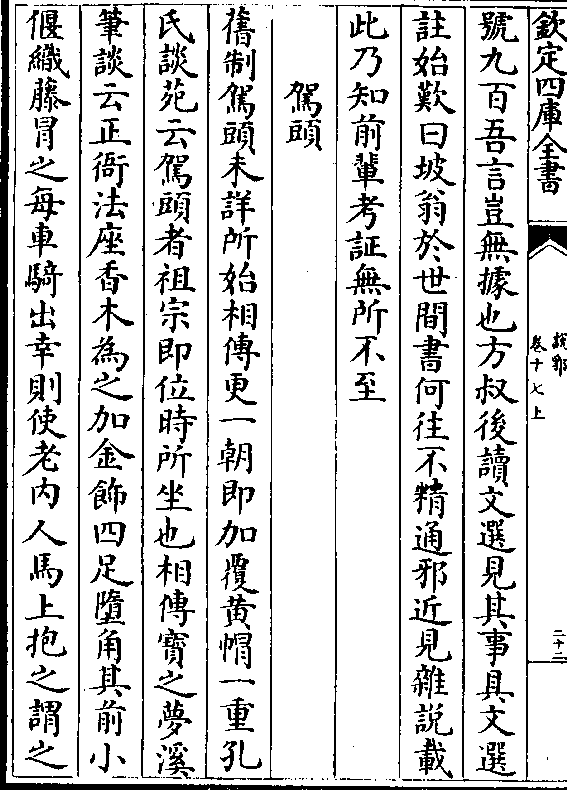 欽定四庫全書
說郛
卷十七上
二十二
號九百吾言豈無據也方叔後讀文選見其事具文選
註始歎曰坡翁於世間書何往不精通邪近見雜說載
此乃知前輩考証無所不至
駕頭
舊制駕頭未詳所始相傳更一朝即加覆黄帽一重孔
氏談苑云駕頭者祖宗即位時所坐也相傳寳之夢溪
筆談云正衙法座香木為之加金飾四足墮角其前小
偃織藤冒之每車騎出幸則使老内人馬上抱之謂之